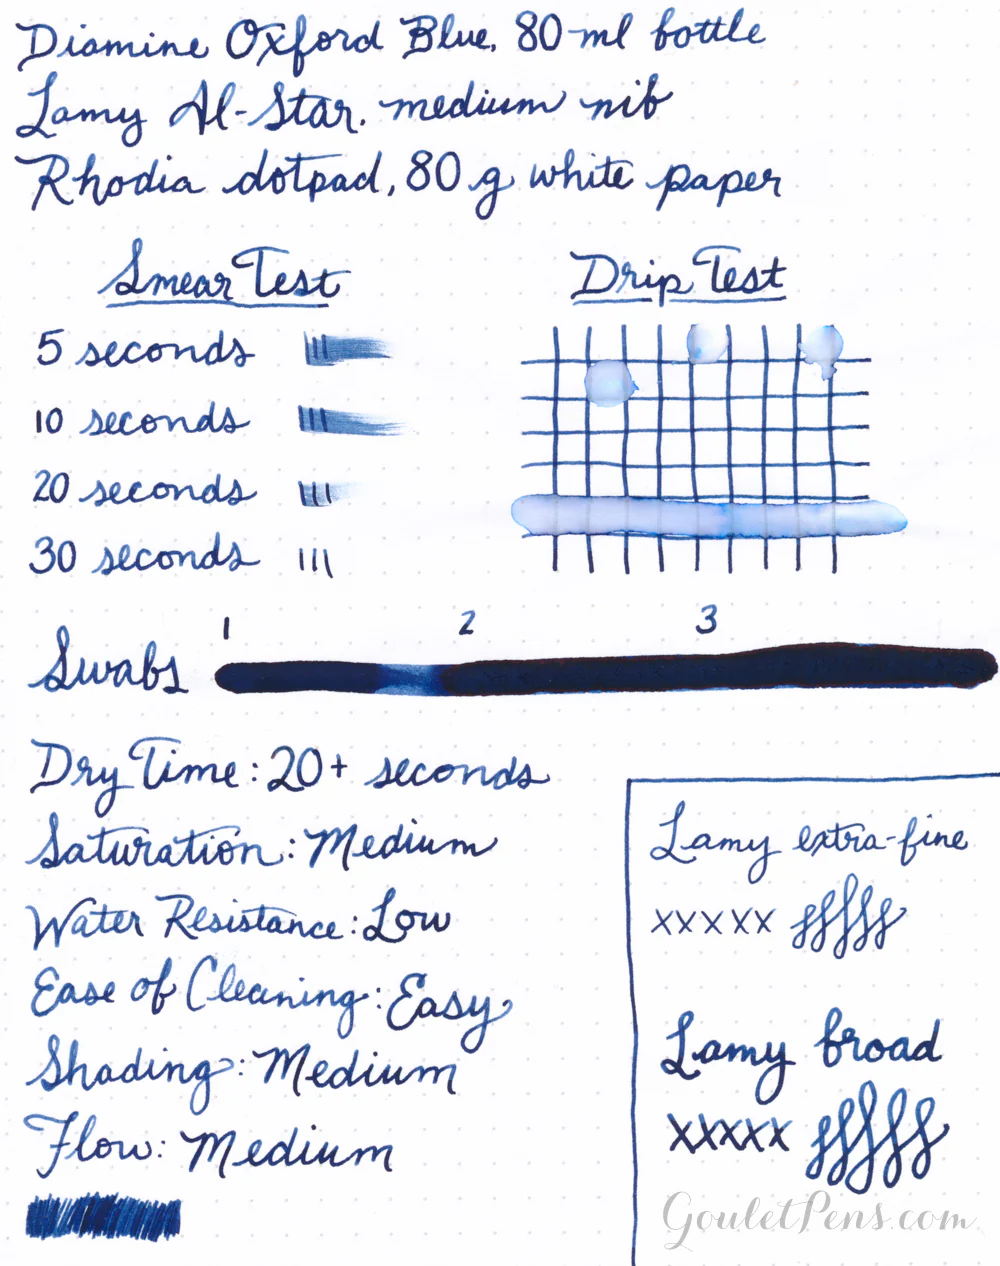 Diamine Oxford Blue, 80 ml bottle
Lamy Al-Star, medium nib
Rhodia dotpad, 80 g white paper
Smear Test
5 seconds
10 seconds
20 seconds
30 seconds
Drip Test
Swabs 1 2 3
Dry Time: 20+ seconds
Saturation: Medium
Water Resistance: Low
Ease of Cleaning: Easy
Shading: Medium
Flow: Medium
Lamy extra-fine
xxxxx
Lamy broad
xxxxx
GouletPens.com